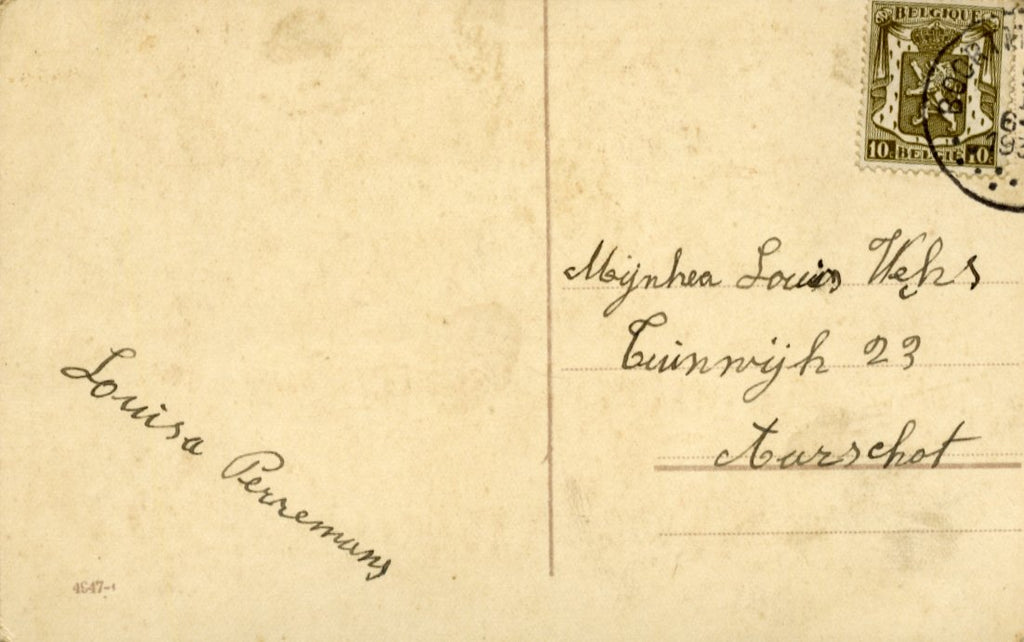 BELGIQUE
10. BELGIE 10.
Mijnhea Louis
Tuinwijk 23
Aarschot
Louisa Perremans
4947-1